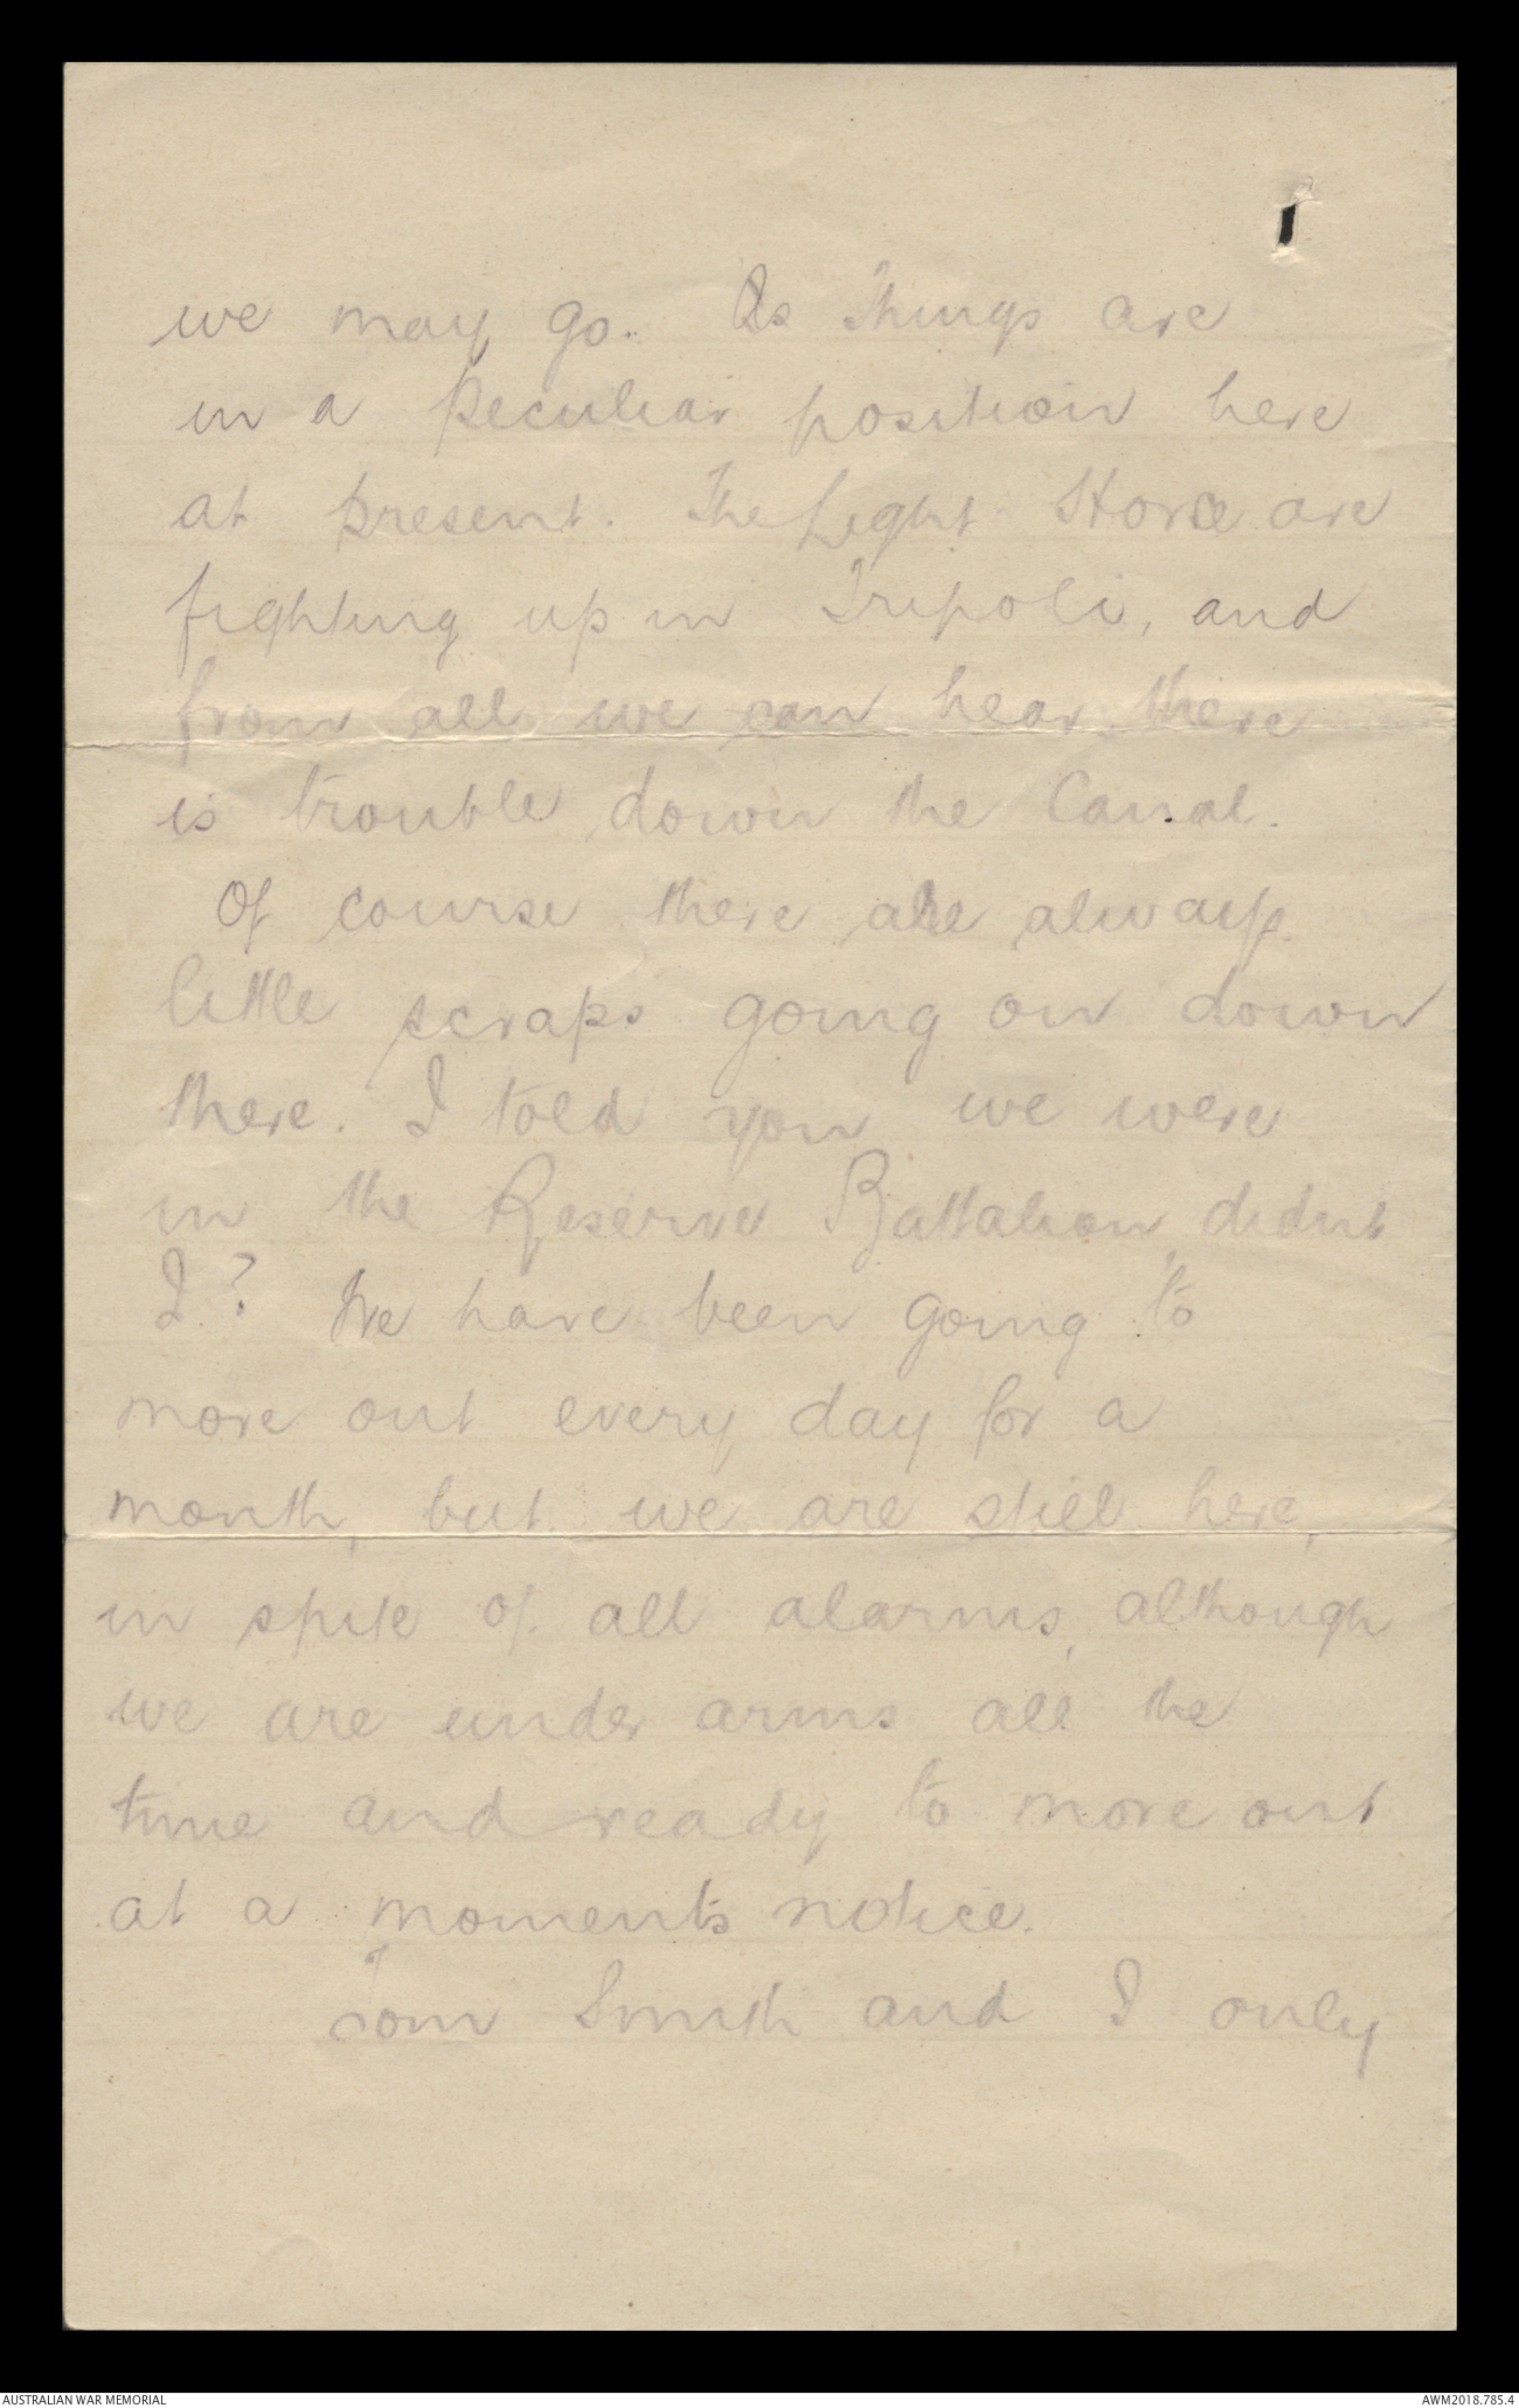 we may go. As things are
in a peculiar position here
at present. The Light Horse are
fighting up in Tripoli, and
from all we can hear there
is trouble down the Canal.
Of course there are always
little scraps going on down
there. I told you we were
in the Reserve Battalion, didnt
I? We have been going to
move out every day for a
month, but we are still here,
in spite of all alarms, although
we are under arms all the
time and ready to move out
at a moments notice.
Tom Smith and I only
AUSTRALIAN WAR MEMORIAL
AWM2018.785.4